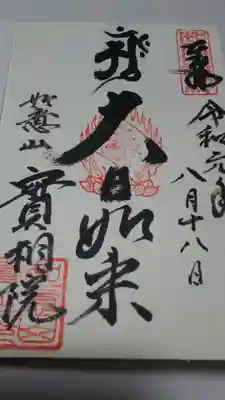 奉拝
令和六年
八月十八日
大日如来
如意山
寶相院